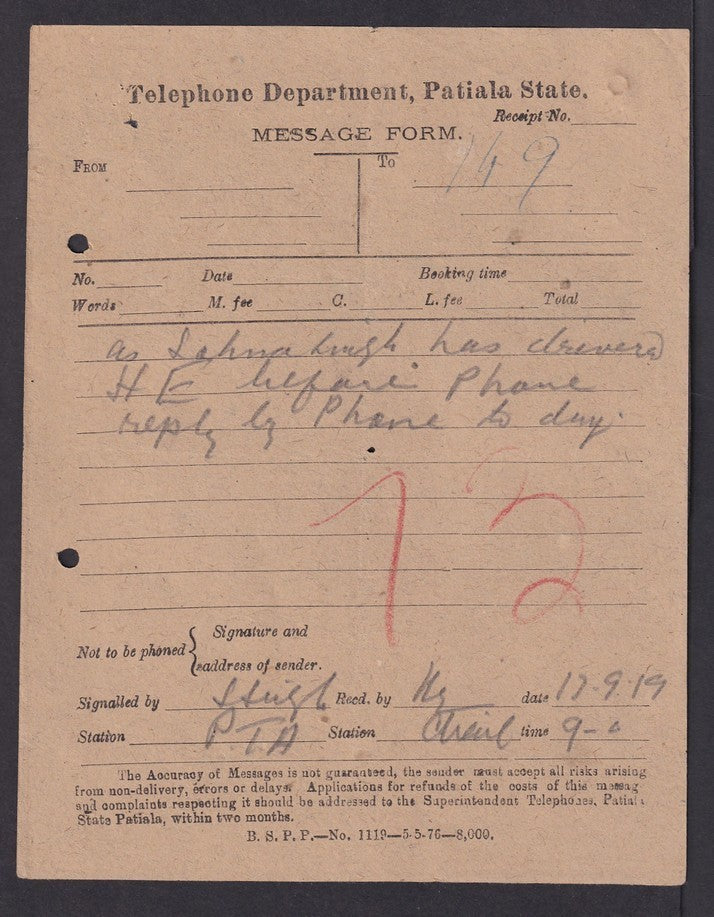 Telephone Department, Patiala State.
Receipt No.
MESSAGE FORM.
FROM To 149
No. Date Booking time
Words M. fee C. L. fee Total
as Singh has
H E before Phone
reply by Phone to day.
72
Not to be phoned { Signature and
address of sender.
Signalled by SSingh Recd. by date 17.9.19
Station PTA Station Chail time 9-0
The Accuracy of Messages is not guaranteed, the sender must accept all risks arising
from non-delivery, errors or delays. Applications for refunds of the costs of this messag
and complaints respecting it should be addressed to the Superintendent Telephones, Patiala
State Patiala, within two months.
B. S. P. P.—No. 1119—5-5-76—8,000.